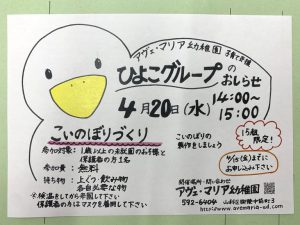 アヴェ・マリア幼稚園 子育て支援
ひよこグループの
おしらせ
4月20日(水) 14:00～
15:00
こいのぼりづくり
参加対象：1歳以上の未就園のお子様と
保護者の方1名
参加費：無料
持ち物：上ぐつ・飲み物
各自必要な物
※検温をしてから参加して下さい
保護者の方はマスクを着用して下さい
こいのぼりの
製作をしましょう
15組
限定！
までに
お申し込み下さい
開催場所・問い合わせ
アヴェ・マリア幼稚園
592-6404
http://www.avemaria-ed.com